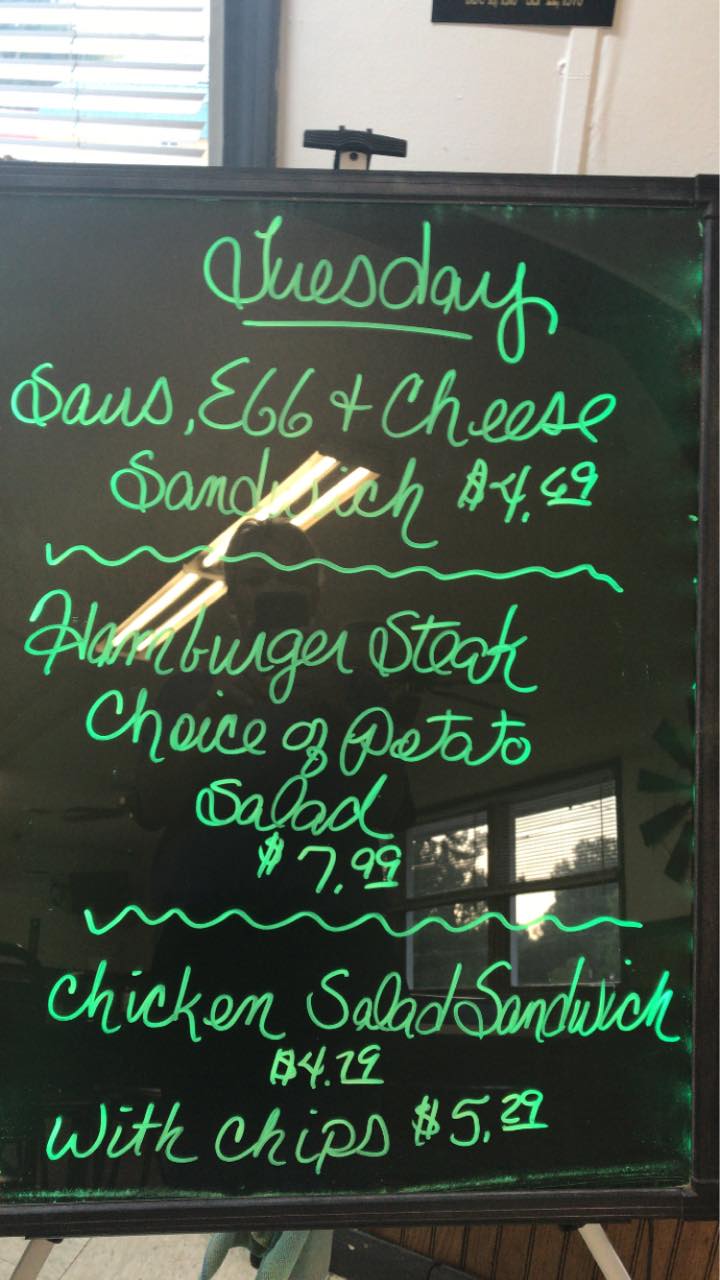 Tuesday
Saus, Egg + Cheese
Sandwich $4.69
Hamburger Steak
Choice of Potato
Salad
$7.99
Chicken Salad Sandwich
$4.79
With chips $5.29